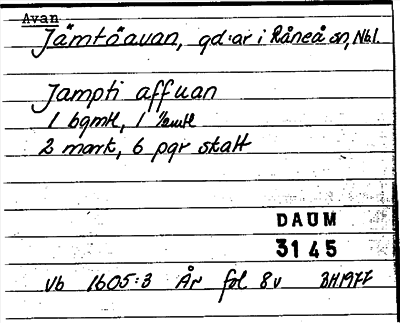 Avan
Jämtöavan, gd:ar i Råneå sn, Nbl.
Jampti affuan
1 bgmtl, 1 
2 mark, 6 pgr skatt
DAUM
3145
Vb 1605:3 År fol 8v BH1977